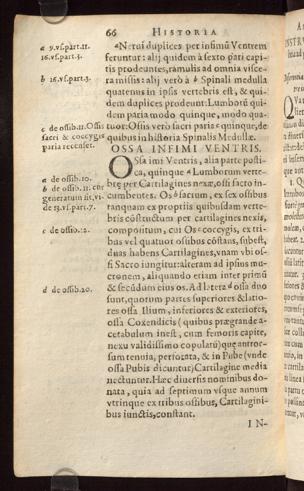 66 HISTORIA
a 9. vs. part. 11.
16. vs. part. 3.
b 16. vs. part. 3.
c de ossib. 11. Ossi
sacri & coccygis
paria recenset.
a de ossib. 10.
b de ossib. 11. cui
c de ossib. 12.
d de ossib. 20.
a Nerui duplices per infimũ Ventrem
feruntur: alij quidem à sexto pari capi-
tis prodeuntes, ramulis ad omnia visce-
ra missis: alij verò à b Spinali medulla
quatenus in ipsis vertebris est, & qui-
dem duplices prodeunt: Lumborũ qui-
dem paria modo quinque, modo qua-
tuor: Ossis verò sacri paria c quinque, de
quibus in historia Spinalis Medullæ.
OSSA INFIMI VENTRIS.
OSsa imi Ventris, alia parte posti-
ca, quinque a Lumborum verte-
bræ per Cartilagines nexæ, ossi sacro in-
cumbentes. Os b sacrum, ex sex ossibus
tanquam ex propriis quibusdam verte-
bris cõstructum per cartilagines nexis,
compositum, cui Os c coccygis, ex tri-
bus vel quatuor ossibus cõstans, subest,
duas habens Cartilagines, vnam vbi os-
si Sacro iungitur: alteram ad ipsius mu-
cronem, aliquando etiam inter primũ
& secũdum eius os. Ad latera d ossa duo
sunt, quorum partes superiores & latio-
res ossa Ilium, inferiores & exteriores,
ossa Coxendicis (quibus prægrande a-
cetabulum inest, cum femoris capite,
nexu validissimo copulatũ) quæ antror-
sum tenuia, pertorata, & in Pube (vnde
ossa Pubis dicuntur) Cartilagine media
nectuntur. Hæc diuersis nominibus do-
nata, quia ad septimum vsque annum
vtrinque ex tribus ossibus, Cartilagini-
bus iunctis, constant.
IN-